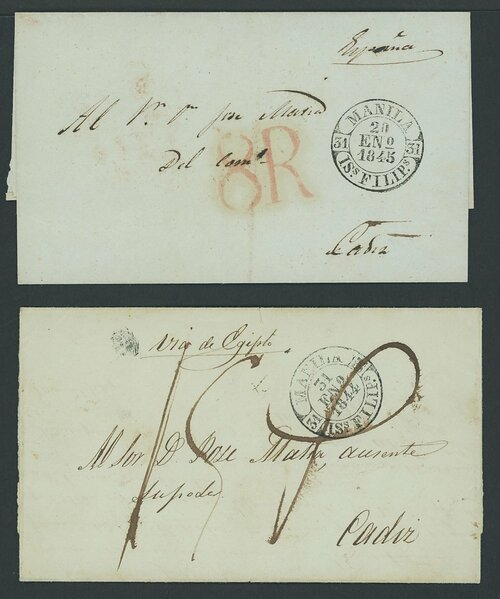 España
Al Sr. Dn. Jose Matia
Del Comº
8R
MANILA
20
ENO
1845
31 31
ISs FILIPs
Cadiz
via de Egipto
MANILA
31
ENO
1844
31
ISs FILIPs
Al Sor. D. Jose Matia ausente
su poder
Cadiz